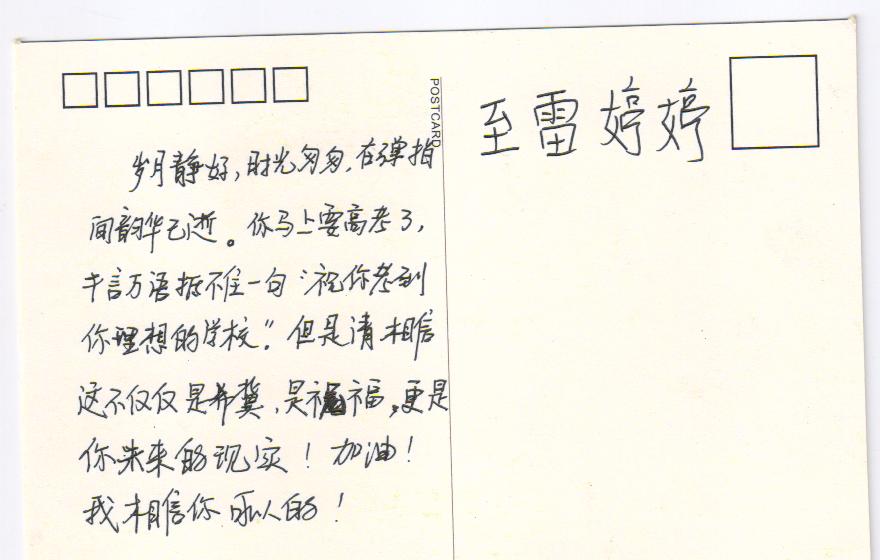 POSTCARD
至雷婷婷
岁月静好,时光匆匆,在弹指
间韵华已逝。你马上要高考了,
千言万语抵不住一句“祝你考到
你理想的学校”。但是请相信
这不仅仅是希冀,是祝福,更是
你未来的现实!加油!
我相信你可以的!